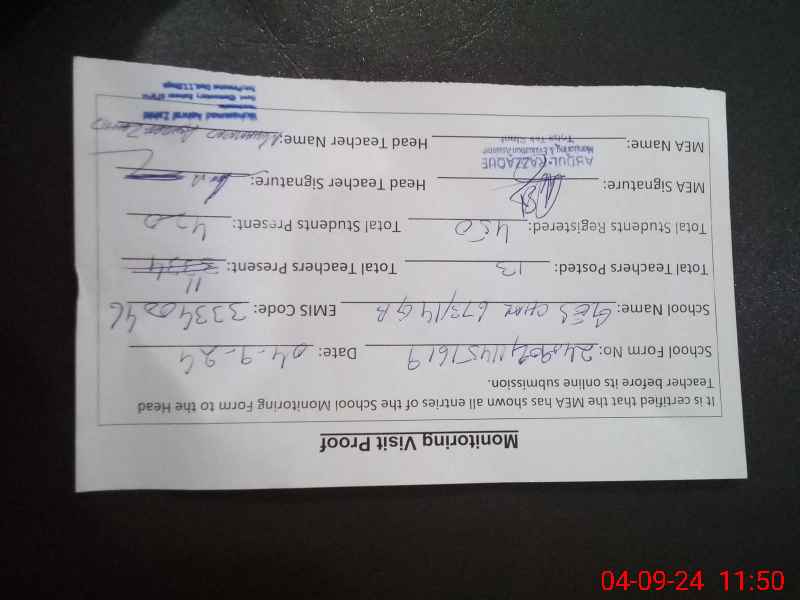 Monitoring Visit Proof
It is certified that the MEA has shown all entries of the School Monitoring Form to the Head
Teacher before its online submission.
School Form No: Date: 04-9-24
School Name: GES CHAK 673/14 GB EMIS Code: 33340046
Total Teachers Posted: 13 Total Teachers Present: 11
Total Students Registered: 450 Total Students Present: 420
MEA Signature: Head Teacher Signature:
ABDUL RAZZAQUE
Monitoring & Evaluation Assistant
Toba Tek Singh
MEA Name: Head Teacher Name:
Muhammad Ashraf Zahid
04-09-24 11:50